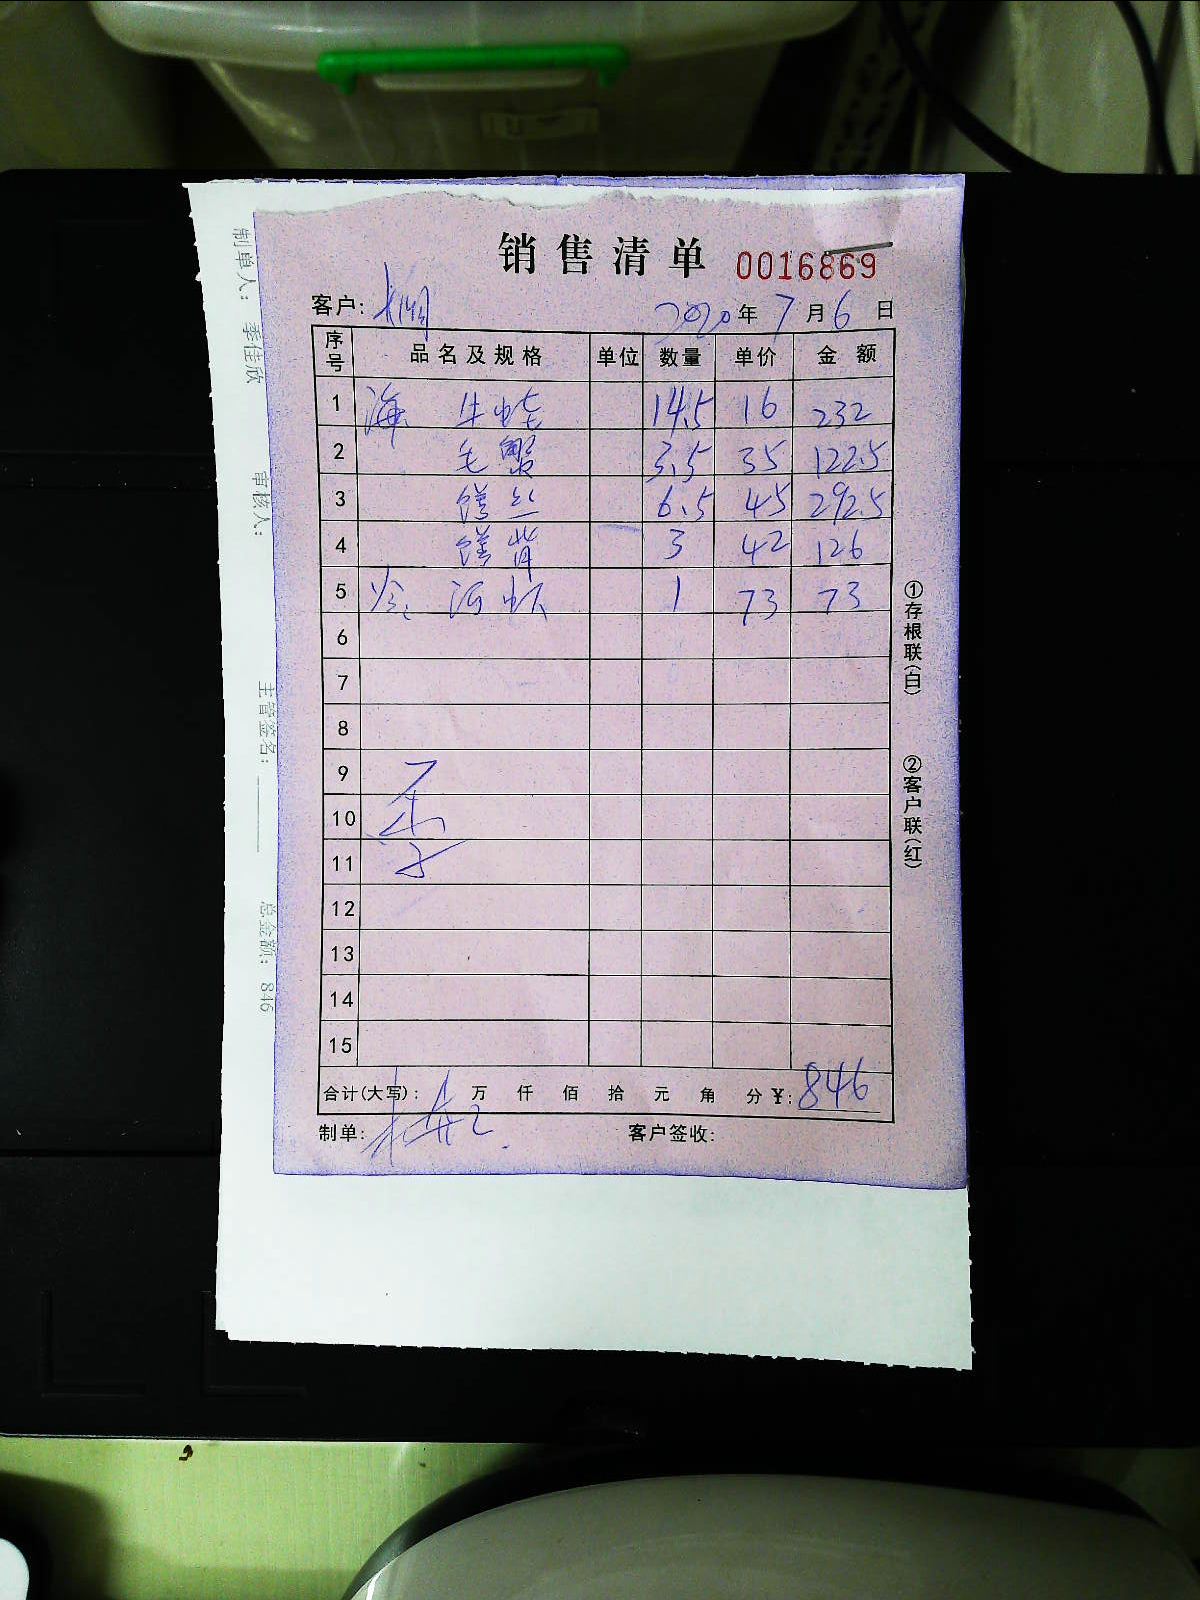 销售清单 0016869
客户: 2020年7月6日
序号 品名及规格 单位 数量 单价 金额
1 海 牛蛙 14.5 16 232
2 毛蟹 3.5 35 122.5
3 鳝丝 6.5 45 292.5
4 鳝背 3 42 126
5 河虾 1 73 73
6
7
8
9
10
11
12
13
14
15
合计(大写): 万 仟 佰 拾 元 角 分 ¥: 846
制单: 客户签收:
①存根联(白)
②客户联(红)
制单人: 季佳欣 审核人: 主管签名: 总金额: 846